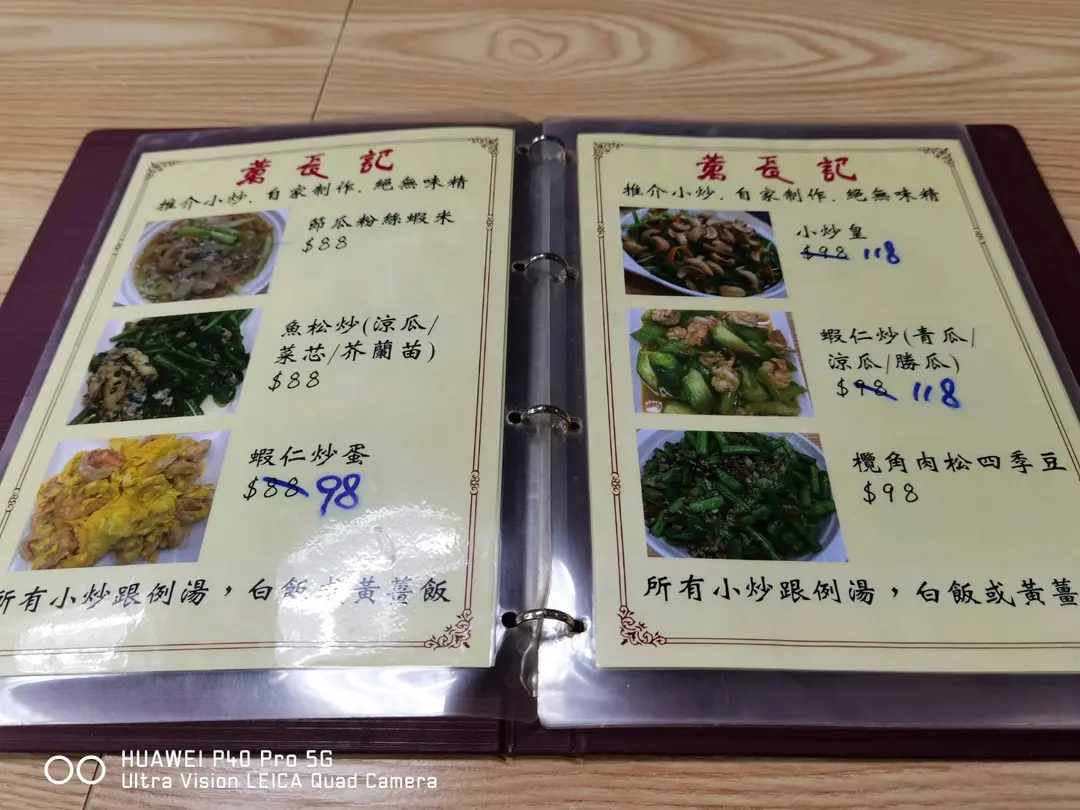 萬長記
推介小炒．自家制作．絕無味精
節瓜粉絲蝦米
$88
魚松炒(涼瓜/
菜芯/芥蘭苗)
$88
蝦仁炒蛋
$88 98
所有小炒跟例湯，白飯或黃薑飯
萬長記
推介小炒．自家制作．絕無味精
小炒皇
$98 118
蝦仁炒(青瓜/
涼瓜/勝瓜)
$98 118
欖角肉松四季豆
$98
所有小炒跟例湯，白飯或黃薑
HUAWEI P40 Pro 5G
Ultra Vision LEICA Quad Camera